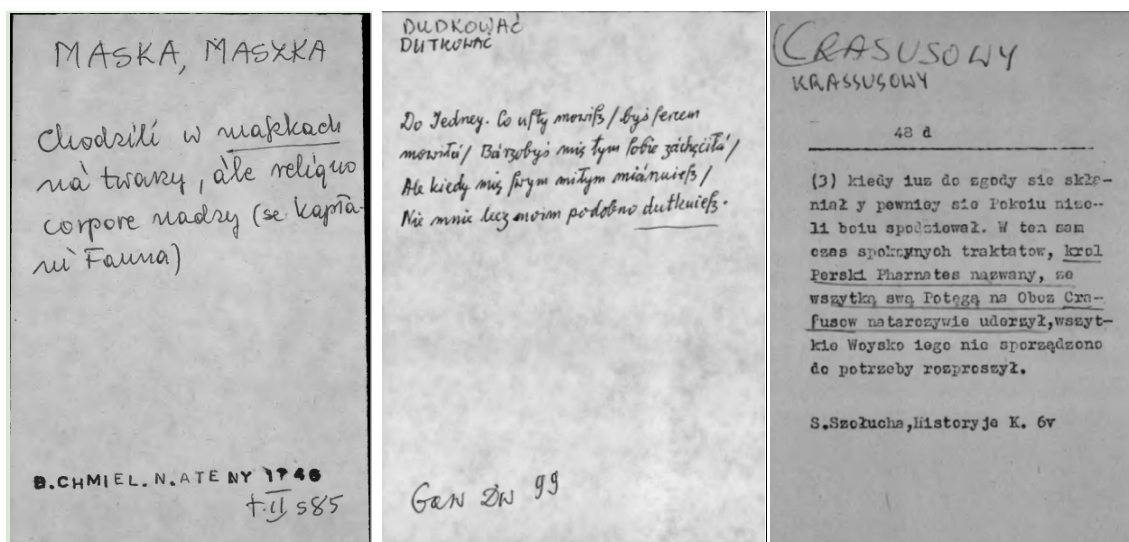 MASKA, MASZKA
Chodzili w maſzkach
ná twarzy, ále reliquo
corpore nadzy (se kapłá-
ni Fauna)
B.CHMIEL.N.ATENY 1746
t.II s 85
DUDKOWAĆ
DUTKOWAĆ
Do Jedney. Co uſty mowiſz / byś ſercem
mowiłá / Bárzobyś mię tym ſobie záchęciłá /
Ale kiedy mię ſwym miłym miánuieſz /
Nie mnie lecz moim podobno dutkuieſz.
Gaw Dw 99
(CRASUSOWY
KRASSUSOWY
48 d
(3) kiedy iuz do zgody sie skła-
niał y pewnicy sie Pokoiu nize-
li boiu spodziował. W ten sam
czas spokoynych traktatow, krol
Perski Pharnates nazwany, ze
wszytką swą Potęgą na Oboz Cra-
fusow natarczywie uderzył,wszyt-
kie Woysko iego nie sporządzone
do potrzeby rozproszył.
S.Szołucha,Historyje K. 6v